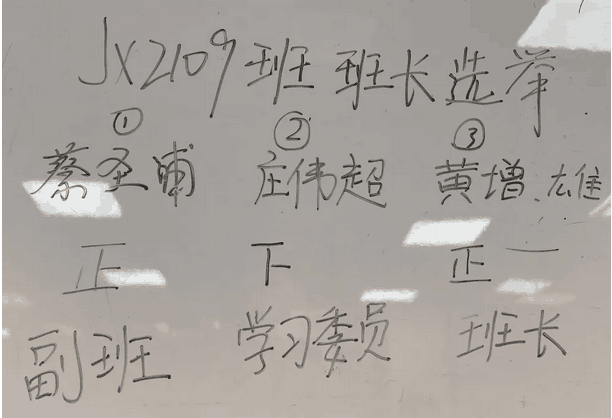 JX2109班班长选举
① ② ③
蔡圣晡 庄伟超 黄增雄
正 下 正一
副班 学习委员 班长